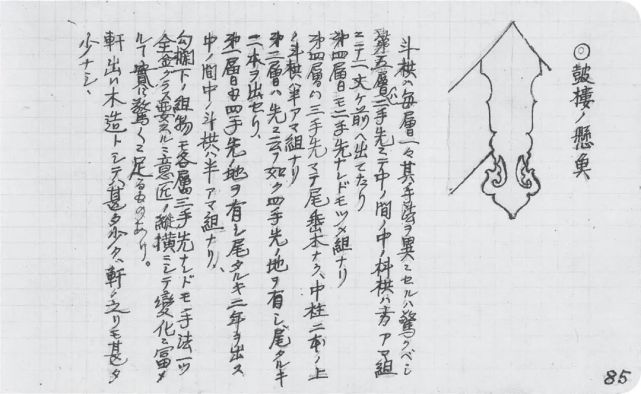 ◎鼓楼ノ懸魚
斗栱ハ毎層一々其手法ヲ異ニセルハ驚クベシ
第五層ハ二手先ニテ中ノ間ノ中ノ斗栱ハ方アマ組
ニテ二丈ケ前ヘ出てたり
第四層目モ二手先ナレドモツメ組ナリ
第四層ハ三手先マテ尾垂木ナク、中柱二本ノ上
ノ斗栱ハ半アマ組ナリ
第二層ハ先ニ云フ如ク四手先ノ地ヲ有シ尾タルキ
二本ヲ出セリ、
第一層目四手先ノ地ヲ有シ尾タルキ二年ヲ出ス
中ノ間中ノ斗栱ハ半アマ組ナリ、
勾欄下ノ組物モ各層三手先ナレドモ手法一ツ
全金グラス要スルニ意匠ノ縦横ニシテ変化ニ富メ
ルて實に驚くニ足るものあり。
軒出ハ木造トシテハ甚タ少ク、軒ノ之リモ甚タ
少ナシ、
85